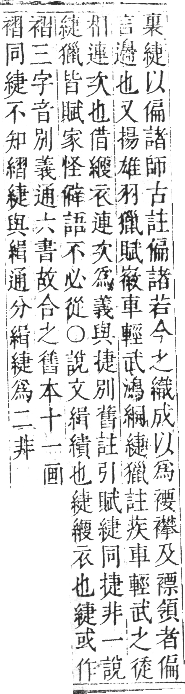 褁緁以偏諸師古註偏諸若今之織成以為䙅襻及褾領者偏
言邊也又揚雄羽獵賦徽車輕武鴻絧緁獵註疾車輕武之徒
相連次也借緶衣連次為義與捷別舊註引賦緁同捷非一說
緁獵皆賦家怪僻語不必從○說文緝績也緁緶衣也緁或作
䌌三字音別義通六書故合之舊本十一画
褶同緁不知縎緁與緝通分緝緁為二非